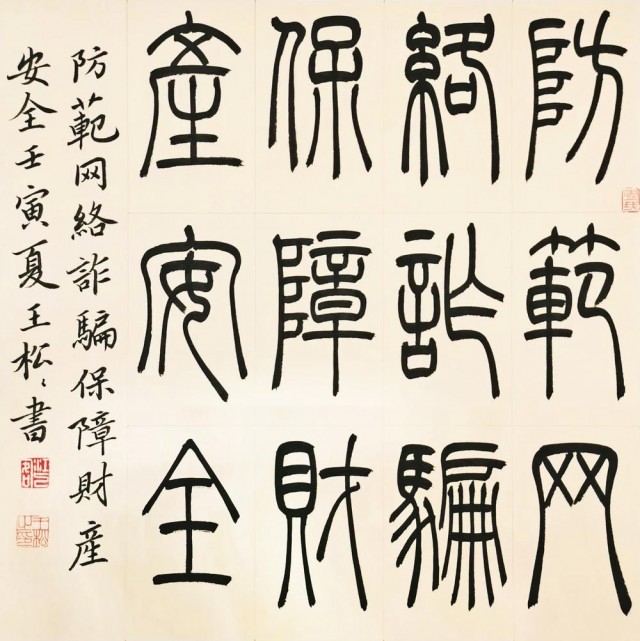 防範网
絡詐騙
保障財
產安全
防範网絡詐騙保障財產
安全壬寅夏王松〻書